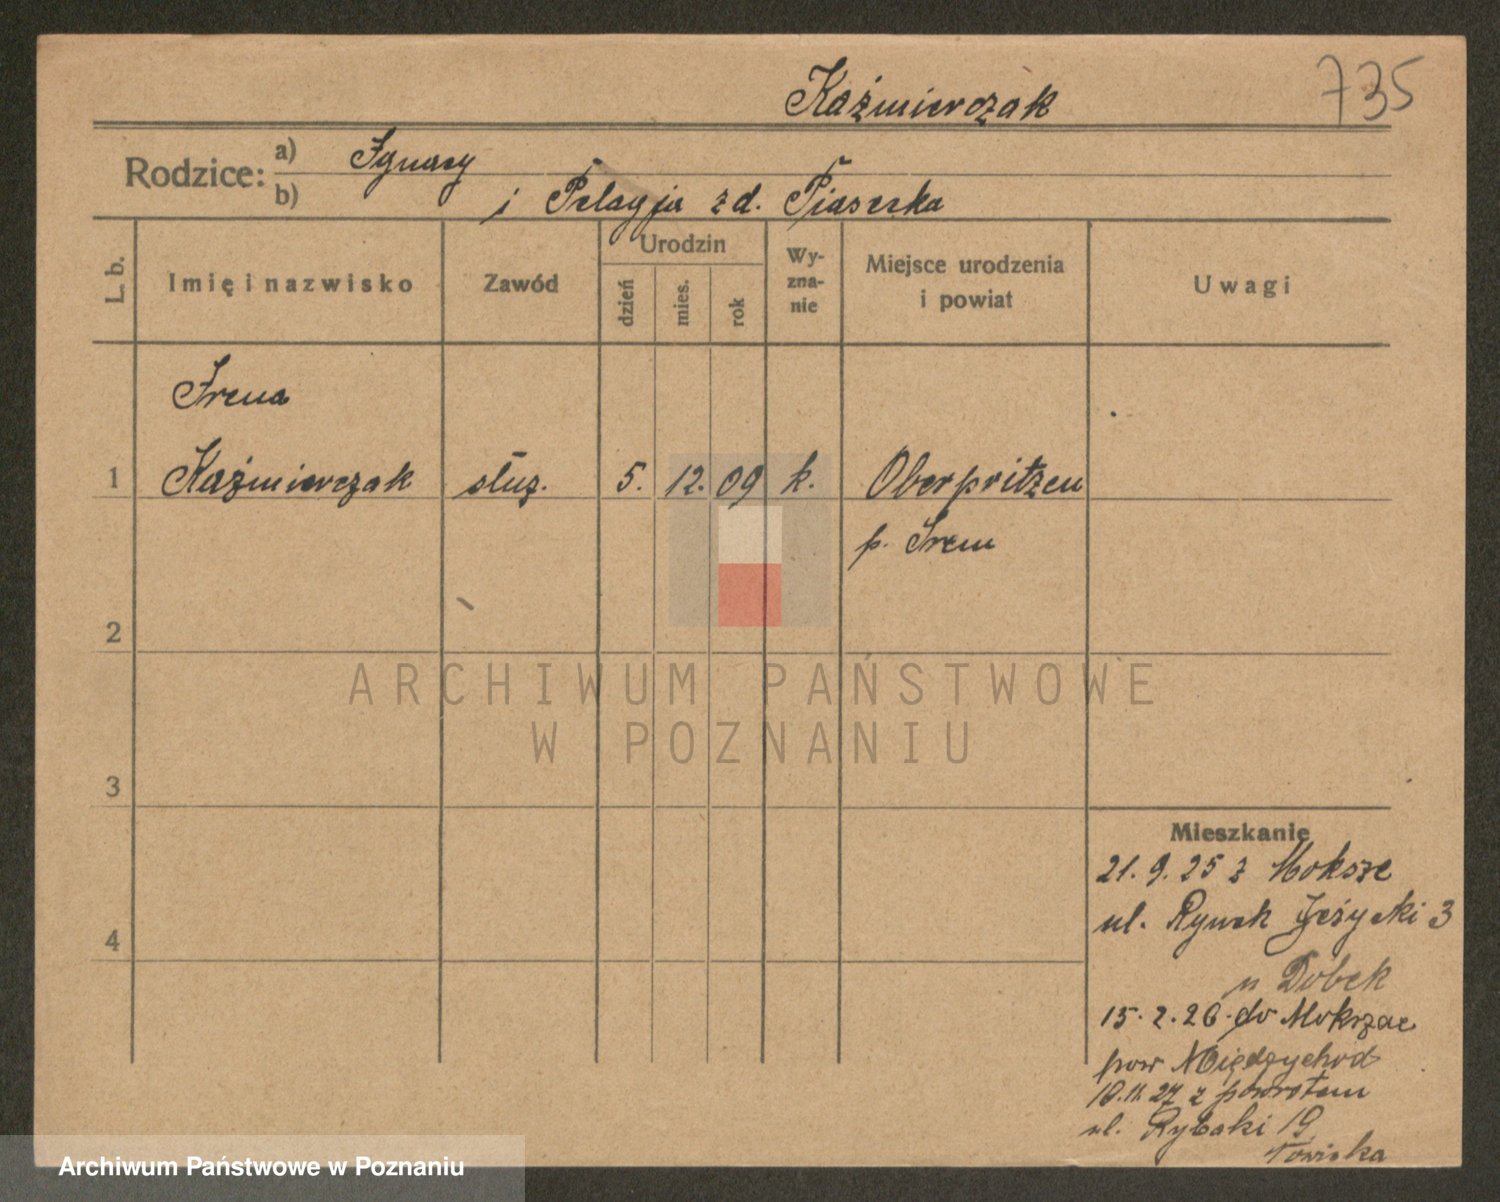 Kaźmierczak
735
Rodzice:
a) Ignacy
b) i Pelagja zd. Piasecka
L. b.
Imię i nazwisko
Zawód
Urodzin
dzień
mies.
rok
Wy-
zna-
nie
Miejsce urodzenia
i powiat
Uwagi
Irena
1 Kaźmierczak służ. 5. 12. 09 k. Oberpritzen
p. Śrem
2
3
4
ARCHIWUM PAŃSTWOWE
W POZNANIU
Mieszkanie
21. 9. 25 z Moksze
ul. Rynek Jeżycki 3
u Dobek
15. 2. 26. do Mokrzec
pow Międzychod
10. 11. 27 z powrotem
ul. Rybaki 19
Archiwum Państwowe w Poznaniu